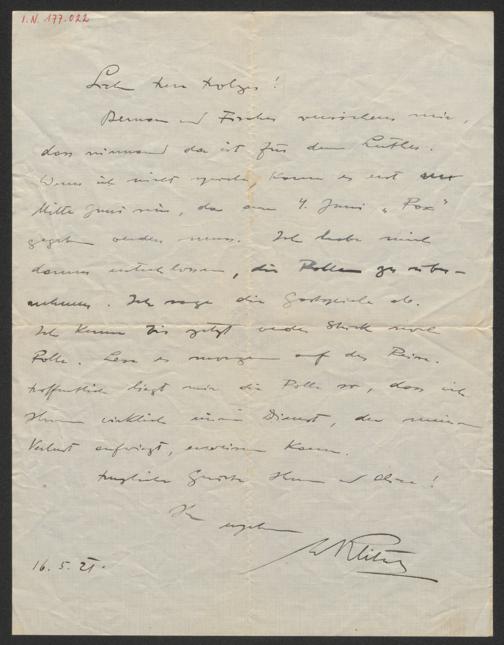 I.N. 177.022
Lieber Herr Holzer!
Bernau und Fischer versichern mir,
dass niemand da ist für den Luther.
Wenn ich nicht spiele, kann es erst
Mitte Juni sein, da am 4. Juni „Pox"
gegeben werden muss. Ich habe mich
daraus entschlossen, die Rolle zu über-
nehmen. Ich sage die Gastspiele ab.
Ich kenne bis jetzt weder Stück noch
Rolle. Lese es morgen auf der Reise.
Hoffentlich liegt mir die Rolle so, dass ich
Ihnen wirklich einen Dienst, der meinen
Verlust aufwiegt, erweisen kann.
Herzliche Grüsse Ihnen
Ihr ergebener
16. 5. 21.